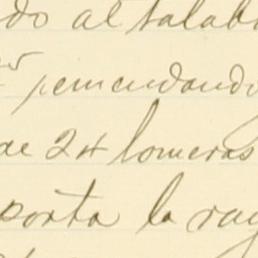 do al talab
remendando
de 24 lomeras
porta la ray